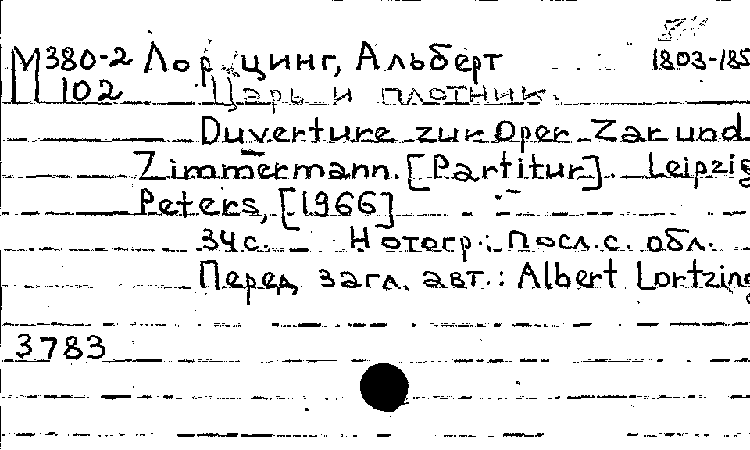 М380-2 Лорцинг, Альберт 1803-185
102 Царь и плотник.
Ouverture zur Oper Zar und
Zimmermann. [Partitur]. Leipzig
Peters, [1966]
34 с. Нотогр.: посл. с. обл.
Перед загл. авт.: Albert Lortzing
3783